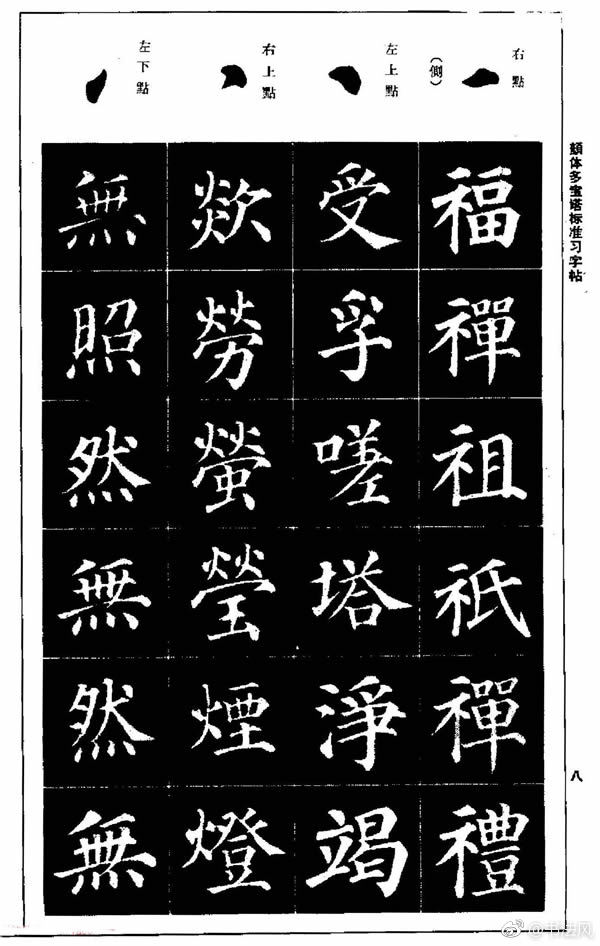 顏体多宝塔标准习字帖
右點
（側）
福禪祖祇禪禮
左上點
受孚嗟塔淨竭
右上點
欻勞螢瑩煙燈
左下點
無照然無然無
八
@书法网